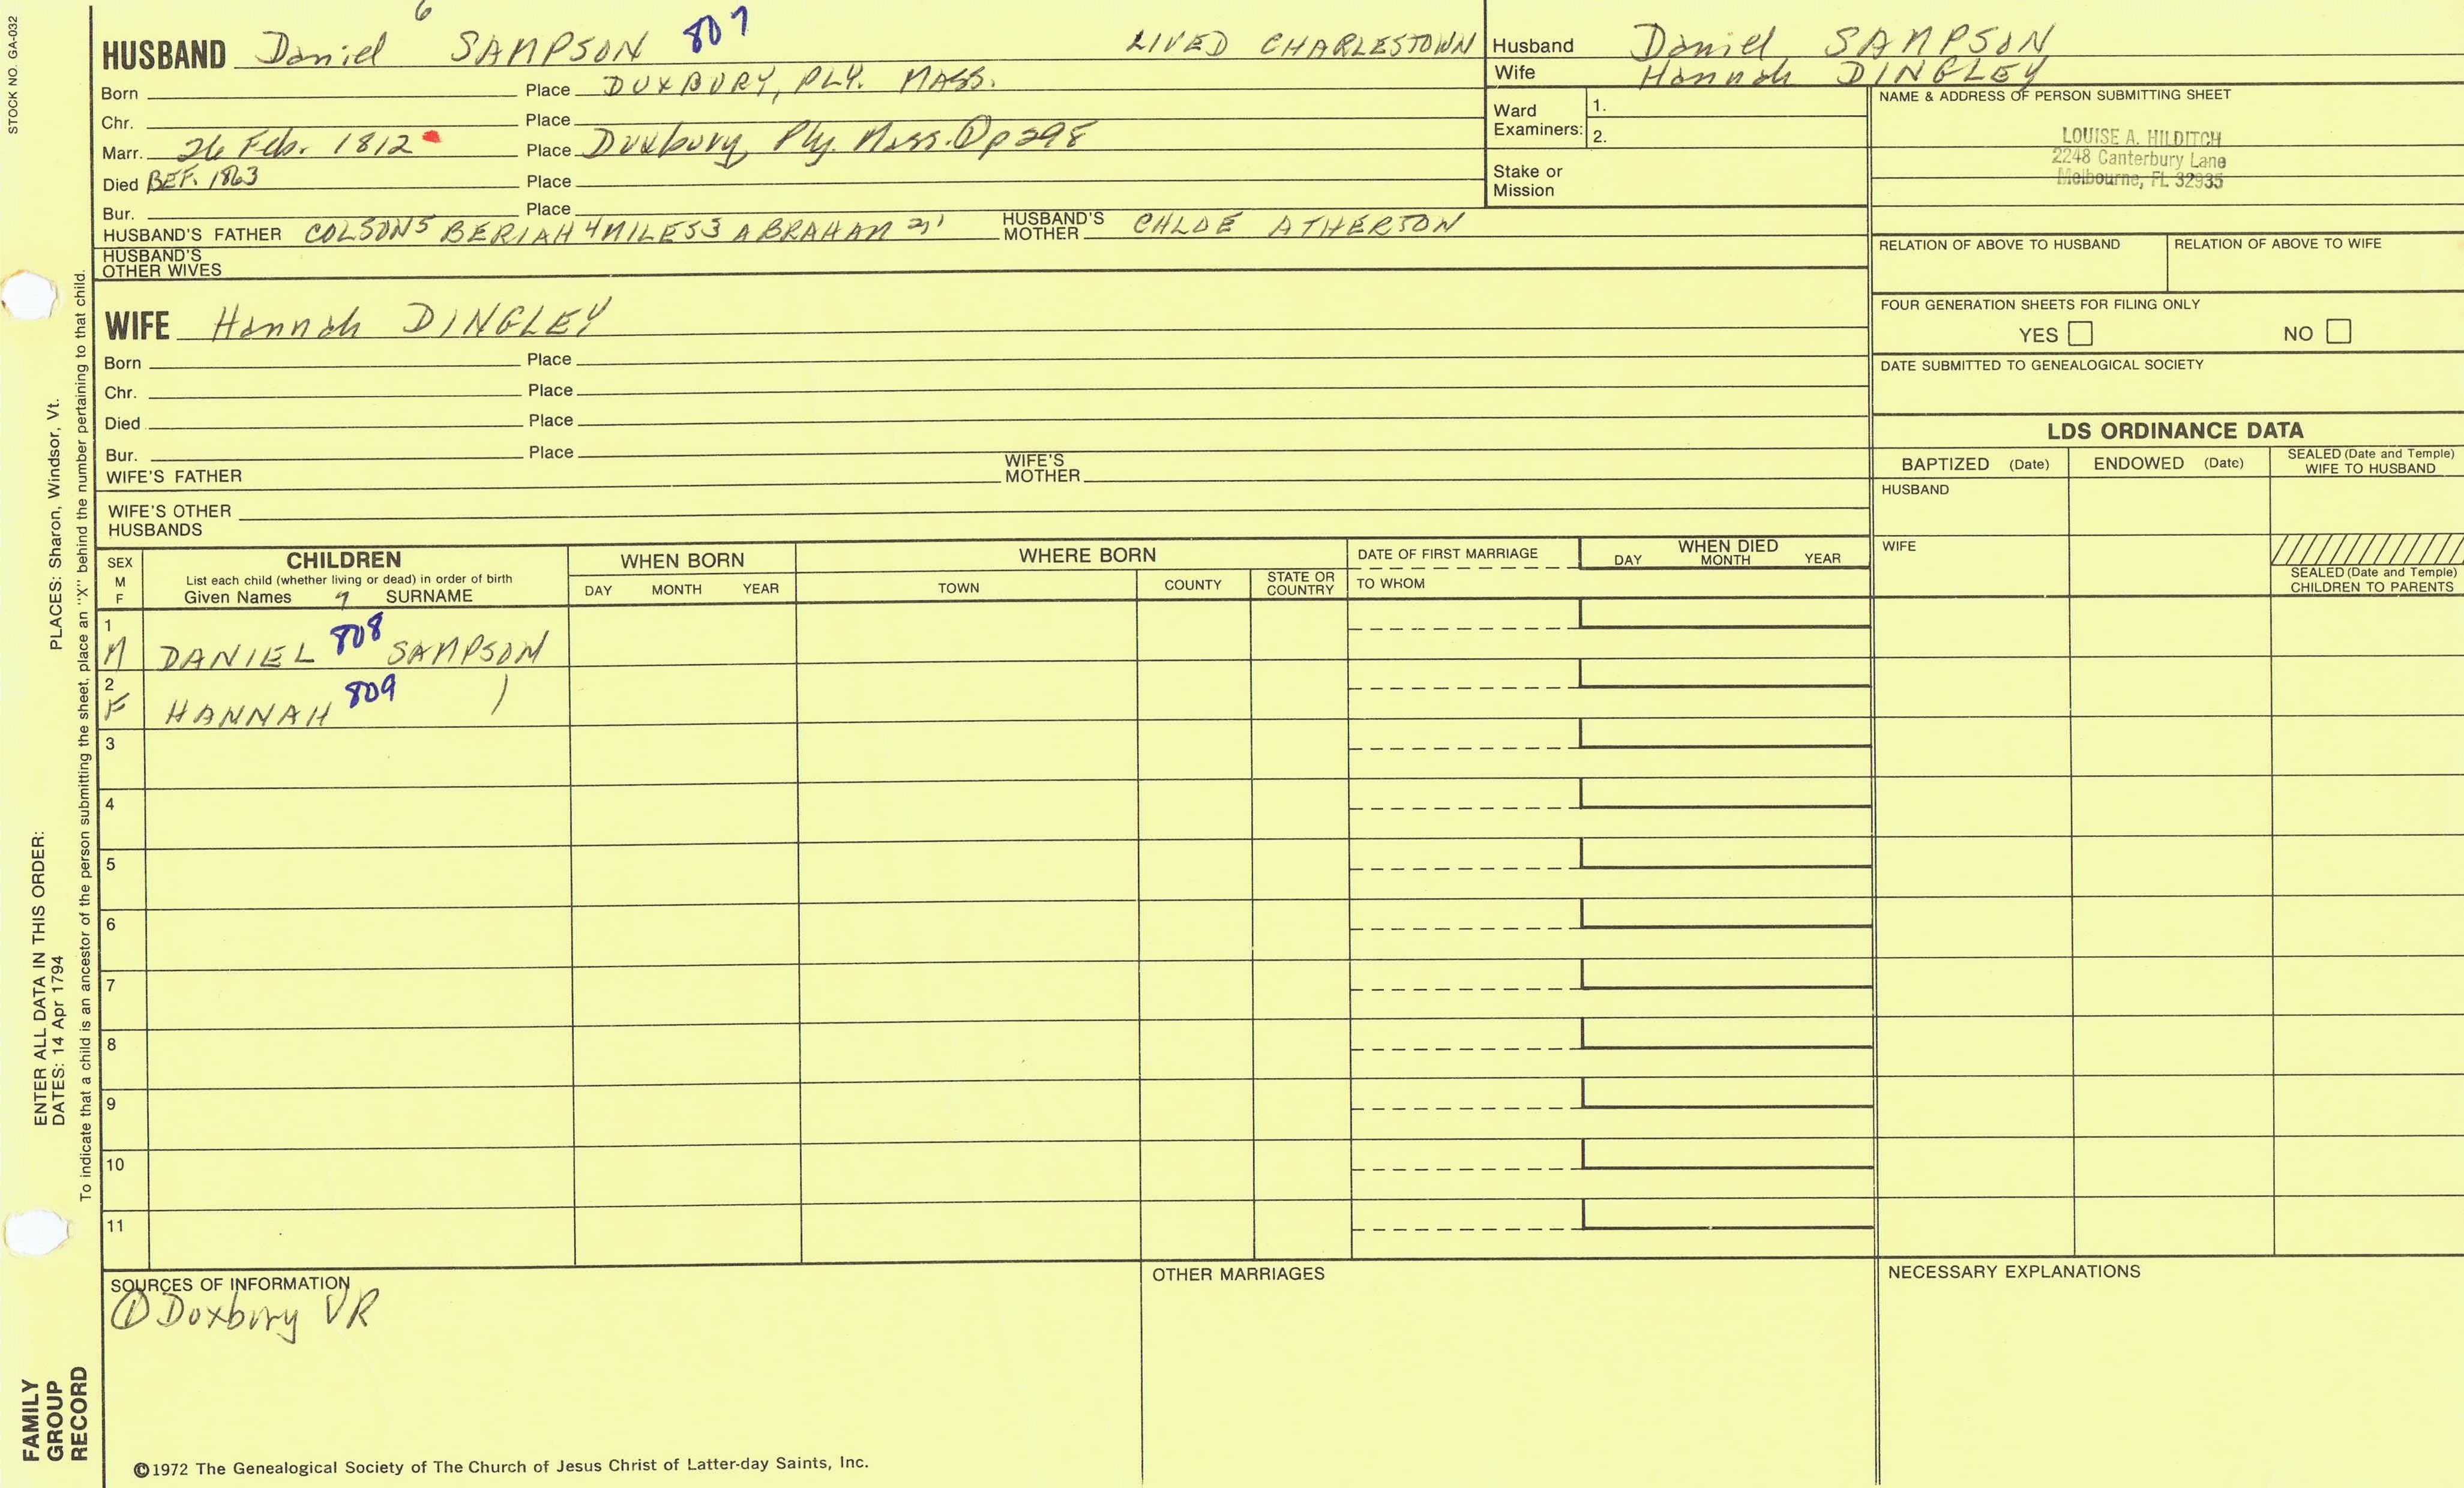 STOCK NO. GA-032
6
HUSBAND Daniel SAMPSON 807 LIVED CHARLESTOWN
Born Place DUXBURY, PLY. MASS.
Chr. Place
Marr. 26 Feb. 1812 Place Duxbury, Ply. Mass. ① p 298
Died BEF. 1863 Place
Bur. Place
HUSBAND'S FATHER COLSON5 BERIAH 4 MILES3 ABRAHAM 2,1 HUSBAND'S MOTHER CHLOE ATHERTON
HUSBAND'S OTHER WIVES
Husband Daniel SAMPSON
Wife Hannah DINGLEY
Ward Examiners: 1.
2.
Stake or Mission
NAME & ADDRESS OF PERSON SUBMITTING SHEET
LOUISE A. HILDITCH
2248 Canterbury Lane
Melbourne, FL 32935
RELATION OF ABOVE TO HUSBAND RELATION OF ABOVE TO WIFE
FOUR GENERATION SHEETS FOR FILING ONLY
YES NO
DATE SUBMITTED TO GENEALOGICAL SOCIETY
WIFE Hannah DINGLEY
Born Place
Chr. Place
Died Place
Bur. Place
WIFE'S FATHER WIFE'S MOTHER
WIFE'S OTHER HUSBANDS
LDS ORDINANCE DATA
BAPTIZED (Date) ENDOWED (Date) SEALED (Date and Temple) WIFE TO HUSBAND
HUSBAND
WIFE
SEALED (Date and Temple) CHILDREN TO PARENTS
SEX M F
CHILDREN
List each child (whether living or dead) in order of birth
Given Names 7 SURNAME
WHEN BORN
DAY MONTH YEAR
WHERE BORN
TOWN COUNTY STATE OR COUNTRY
DATE OF FIRST MARRIAGE
TO WHOM
WHEN DIED
DAY MONTH YEAR
1
M DANIEL 808 SAMPSON
2
F HANNAH 809 )
3
4
5
6
7
8
9
10
11
SOURCES OF INFORMATION
① Duxbury VR
OTHER MARRIAGES
NECESSARY EXPLANATIONS
©1972 The Genealogical Society of The Church of Jesus Christ of Latter-day Saints, Inc.
FAMILY
GROUP
RECORD
ENTER ALL DATA IN THIS ORDER:
DATES: 14 Apr 1794 PLACES: Sharon, Windsor, Vt.
To indicate that a child is an ancestor of the person submitting the sheet, place an "X" behind the number pertaining to that child.